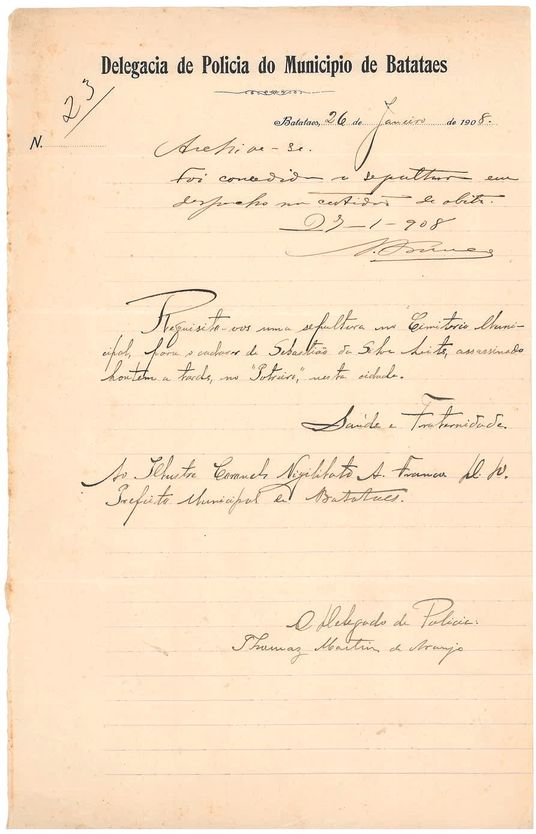 Delegacia de Policia do Municipio de Batataes
Batataes, 26 de Janeiro de 1908.
N. 23
Archive-se.
Foi concedida a sepultura em
despacho na certidão de obito.
27-1-908
Requisito-vos uma sepultura no "Cimiterio Muni-
cipal, para o cadaver de Sebastião da Silva Leite, assassinado
hontem a tarde, no "Potreiro," nesta cidade.
Saúde e Fraternidade.
Ao Illustre Coronel Vigilato A. Franco D. D.
Prefeito Municipal de Batataes.
O Delegado de Policia:
Thomaz Martin de Araujo